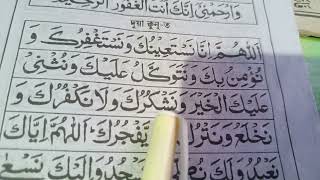 وَارْحَمْنِيْ اِنَّكَ اَنْتَ الْغَفُوْرُ الرَّحِيْمُ
দুয়া কুনূ-ত
اَللّٰهُمَّ اِنَّا نَسْتَعِيْنُكَ وَ نَسْتَغْفِرُكَ وَ
نُؤْمِنُ بِكَ وَ نَتَوَكَّلُ عَلَيْكَ وَ نُثْنِيْ
عَلَيْكَ الْخَيْرَ وَ نَشْكُرُكَ وَ لَا نَكْفُرُكَ وَ
نَخْلَعُ وَ نَتْرُكُ يَّفْجُرُكَ اَللّٰهُمَّ اِيَّاكَ
نَعْبُدُ وَ لَكَ وَ اِلَيْكَ